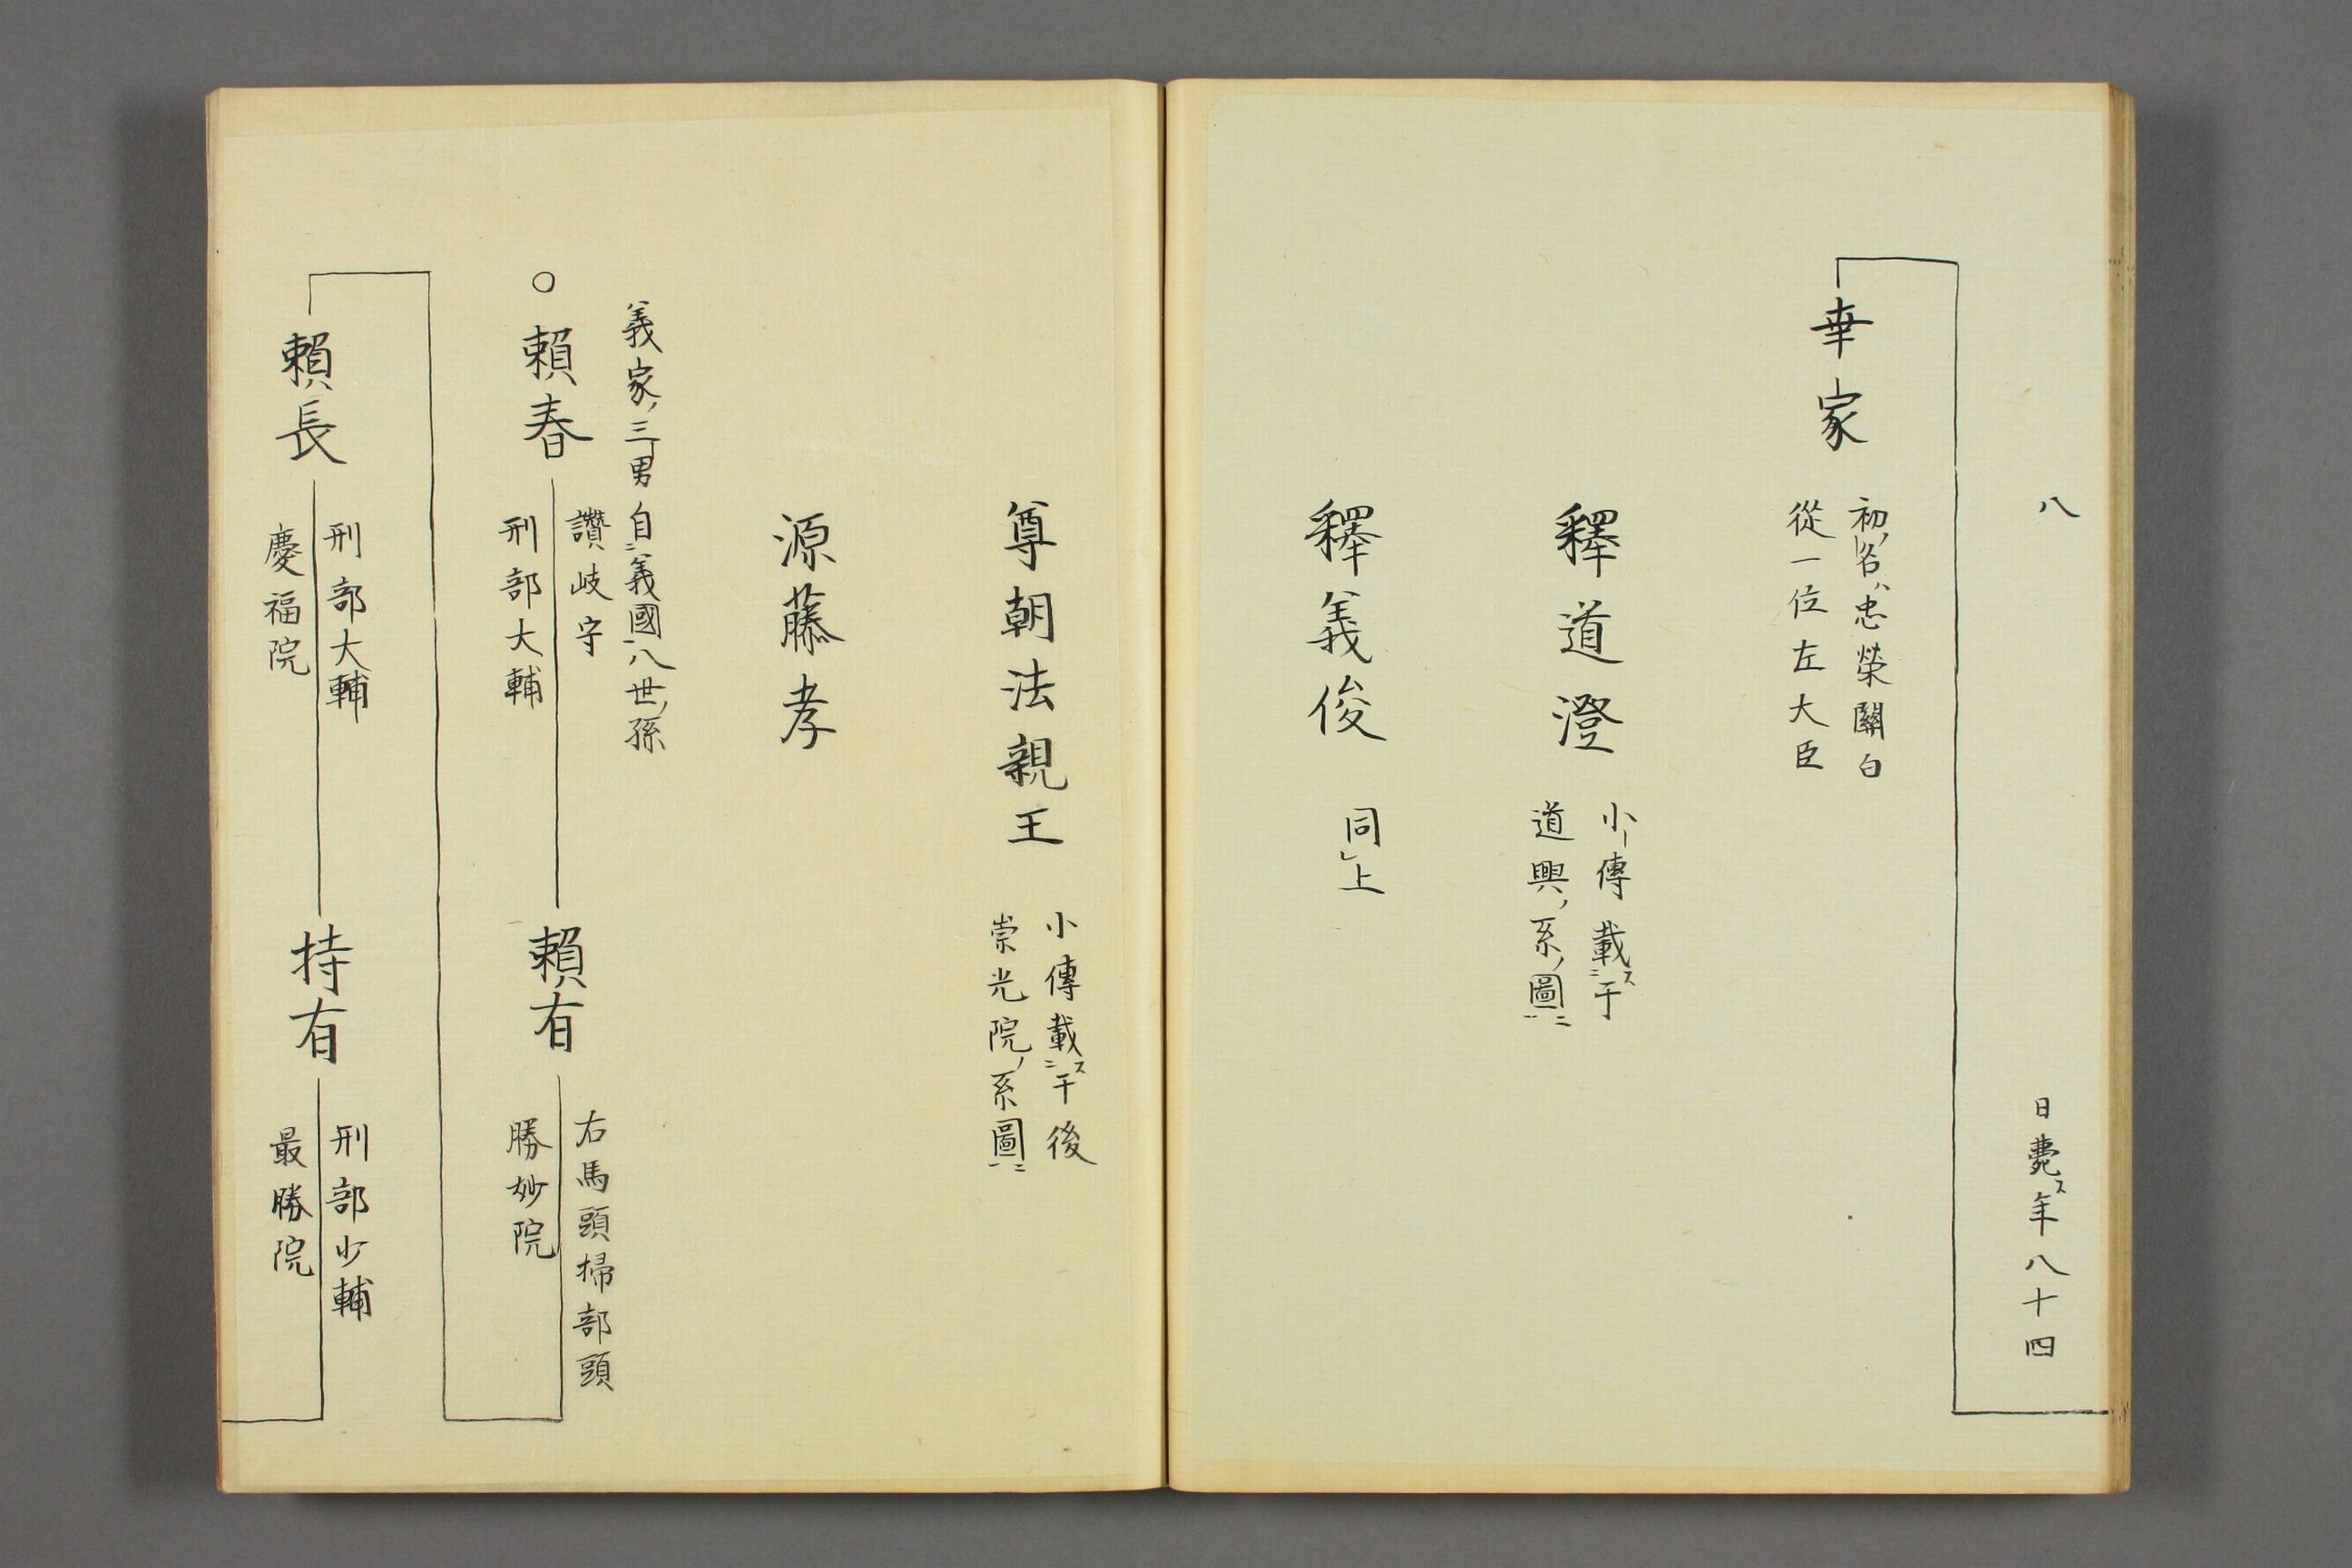 八
日薨ス年八十四
幸家
初ノ名ハ忠榮關白
從一位左大臣
釋道澄
小傳載ス于
道興ノ系ノ圖ニ
釋義俊
同上
尊朝法親王
小傳載ス于後
崇光院ノ系圖ニ
源藤孝
義家ノ三男自義國八世ノ孫
○賴春
讚岐守
刑部大輔
賴有
右馬頭掃部頭
勝妙院
賴長
刑部大輔
慶福院
持有
刑部少輔
最勝院